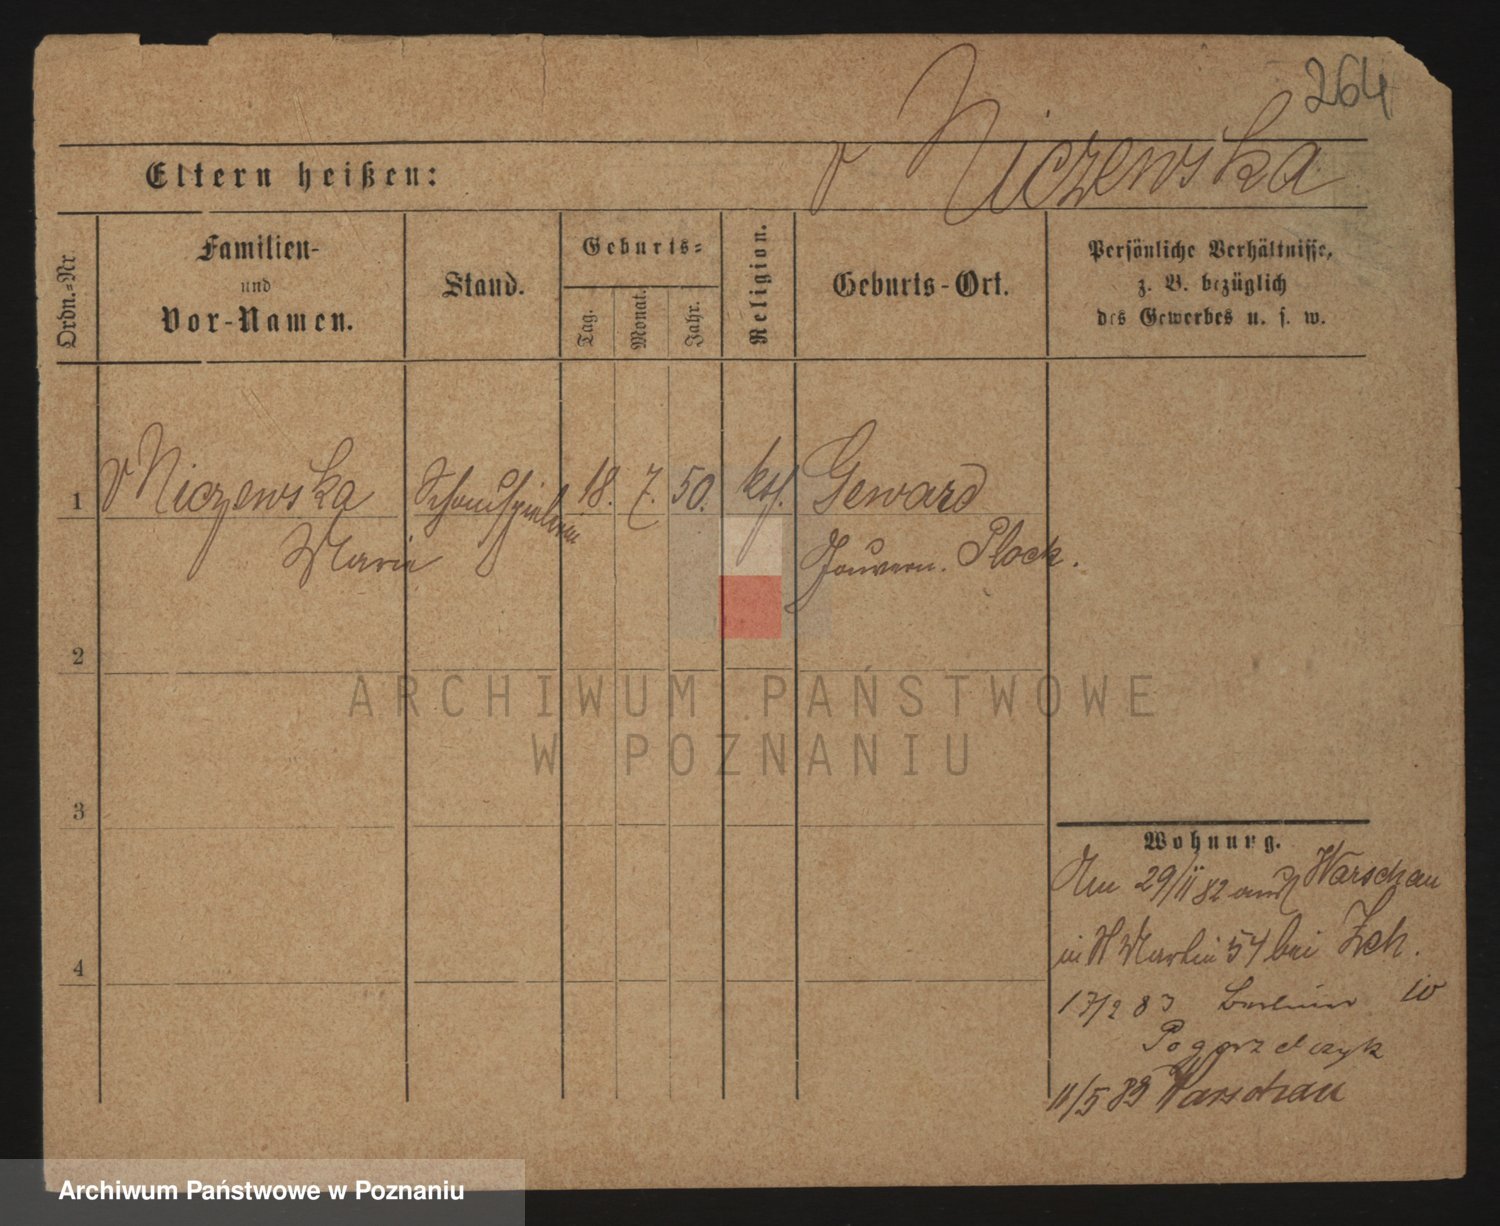 264
v Niczewska
Eltern heißen:
Ordn.-Nr
Familien-
und
Vor-Namen.
Stand.
Geburts-
Tag.
Monat.
Jahr.
Religion.
Geburts-Ort.
Persönliche Verhältnisse,
z. B. bezüglich
des Gewerbes u. s. w.
1 v Niczewska Schauspielerin 18. 7. 50. kth. Geward
Marie Gouvern. Plock.
2
ARCHIWUM PAŃSTWOWE
W POZNANIU
3
4
Wohnung.
Am 29/11 82 aus Warschau
in St Martin 54 bei Zch.
17/2 83 Berliner 10
Pogorzelczyk
11/5 83 Warschau
Archiwum Państwowe w Poznaniu